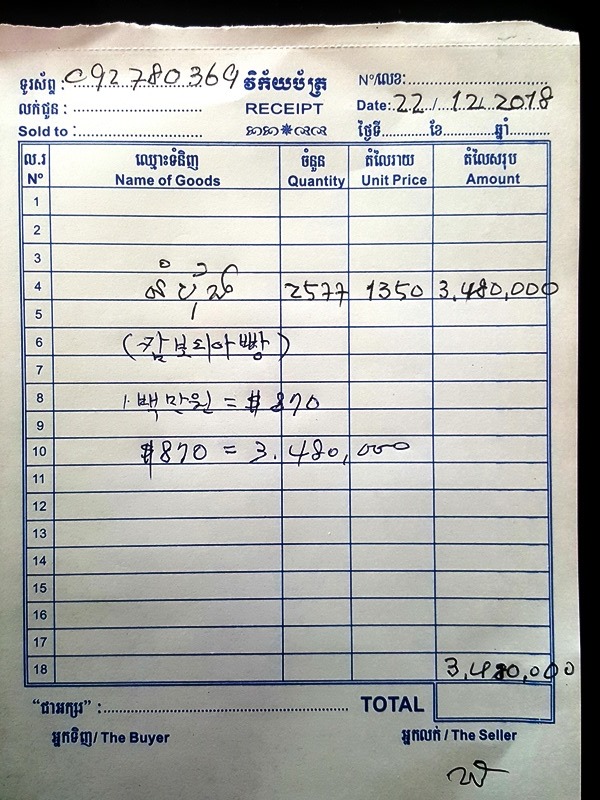 ទូរស័ព្ទ : 092 780369
លក់ជូន :
Sold to :
វិក្កយបត្រ
RECEIPT
N°/លេខ:
Date: 22/.12.2018
ថ្ងៃទី ខែ ឆ្នាំ
ល.រ ឈ្មោះទំនិញ ចំនួន តំលៃរាយ តំលៃសរុប
N° Name of Goods Quantity Unit Price Amount
1
2
3
4 2577 1350 3,480,000
5
6 (캄보디아빵)
7
8 1. 백만원 = $ 870
9
10 $870 = 3.480,000
11
12
13
14
15
16
17
18 3,480,000
"ជាអក្សរ" : TOTAL
អ្នកទិញ/ The Buyer អ្នកលក់ / The Seller